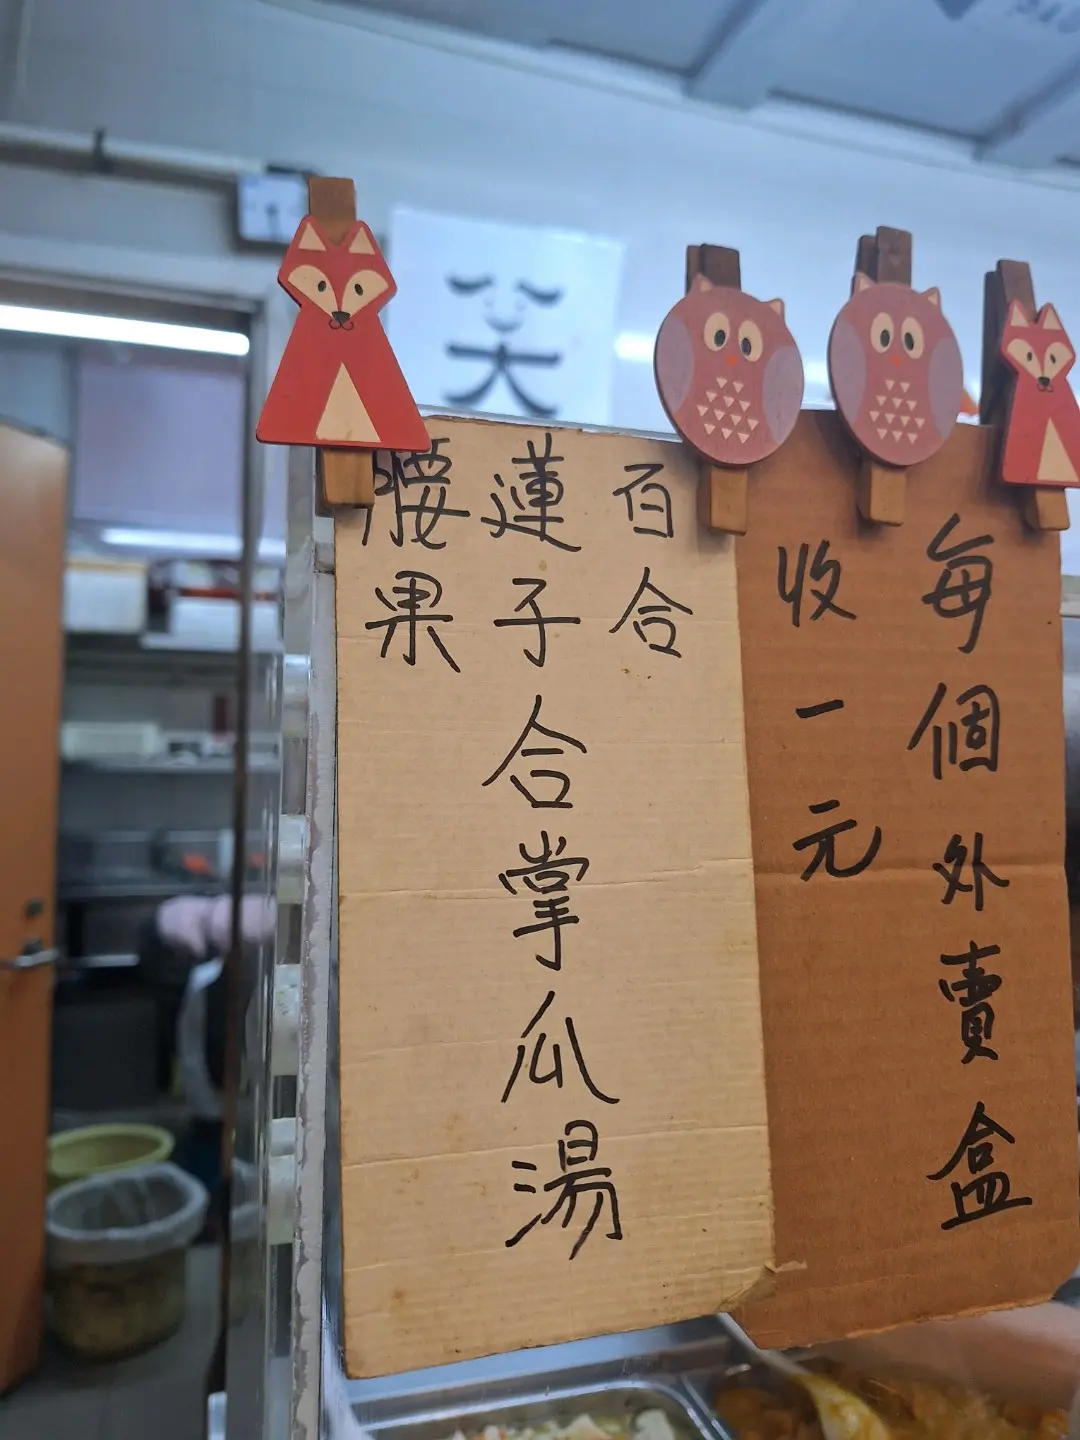 笑
百合
蓮子合掌瓜湯
腰果
每個外賣盒
收一元